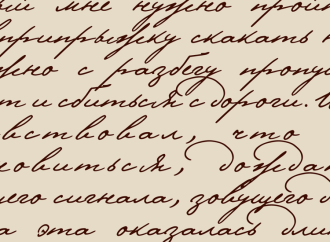 мне нужно прой
припрыжку скакать
жно с разбегу пропу
т и сбиться с дороги.
вствовал, что
овиться, дождат
его сигнала, зовущего
а эта оказалась дли